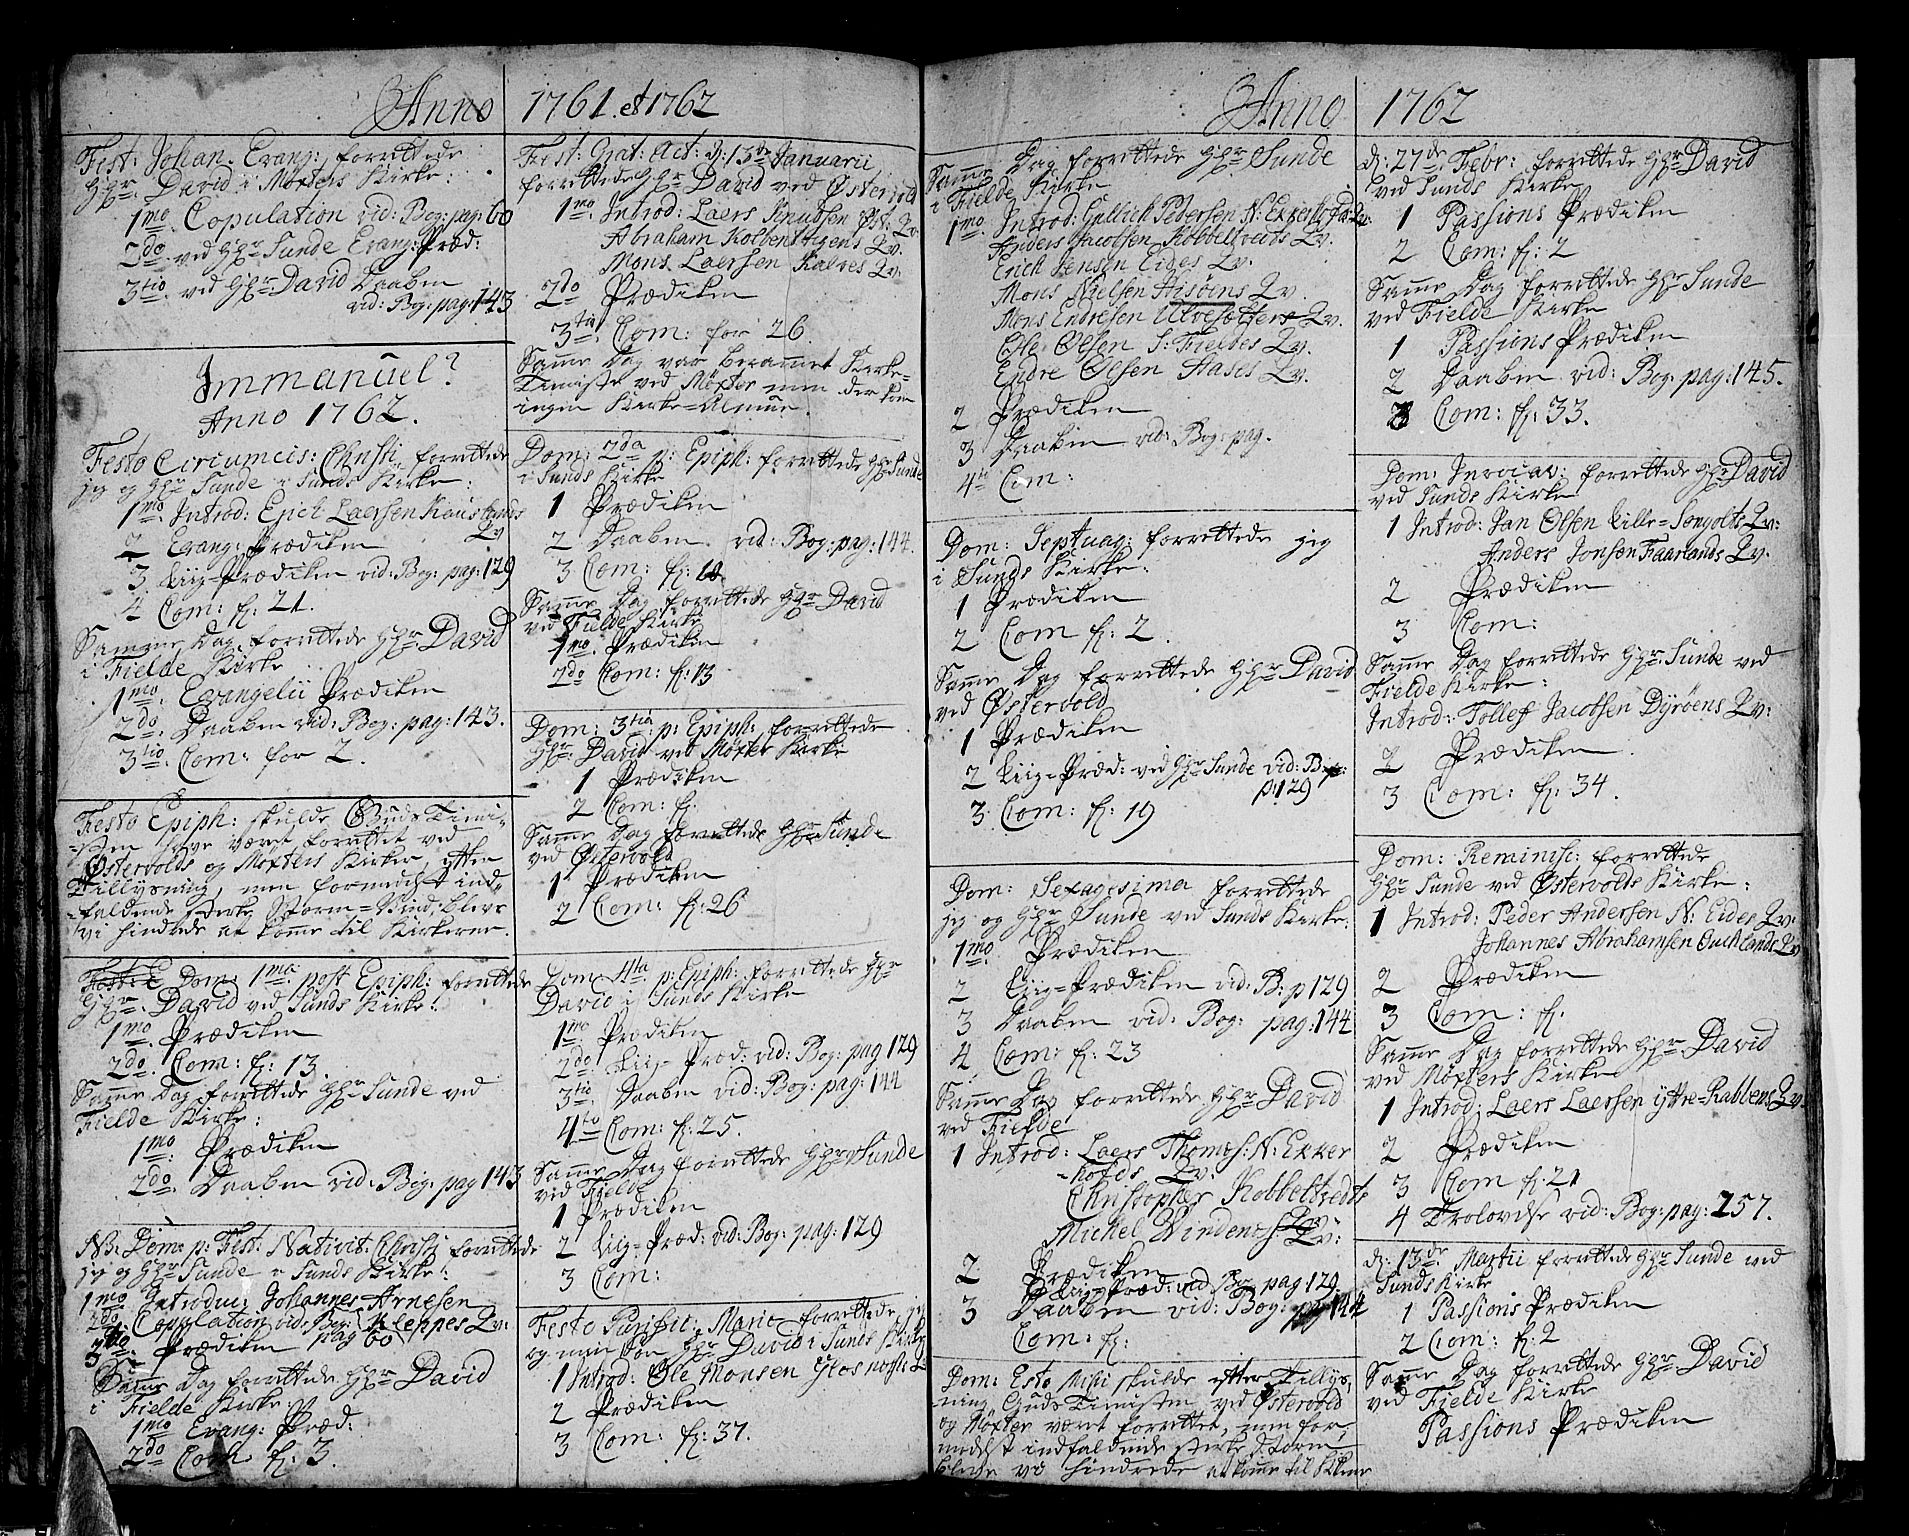 Anno 1761. et 1762
Fest: Johan. Evang: forrettede
HHr. David i Møxters Kirke:
1mo. Copulation vid: Bog: pag: 60
2do. ved HHr Sunde Evang: Præd:
3tio. ved HHr: David Daaben
vid: Bog: pag: 143
Immanuel?
Anno 1762.
Festo Circumcis: Christi forrettede
jeg og HHr Sunde i Sunds Kirke:
1mo. Introd: Laersen
Lv
2 Evang: Prædiken
3 Liig-Prædiken vid: Bog: pag: 129
4 Com: f: 21.
Samme Dag forrettede HHr David
i Fielde Kirke
1mo. Evangelii Prædiken
2do. Daaben vid: Bog: pag: 143.
3tio. Com: for 2.
Festo Epiph: skulde Guds Tieni-
-sten have været forrettet ved
Østervolds og Møxters Kirker, efter
Tillysning, men formedelst ind-
-faldende sterke Storm-Vind, bleve
vi hindrede at komme til Kirkerne.
Fest: E Dom: 1ma. post Epiph: forrettede
HHr. David ved Sunds Kirke:
1mo. Prædiken
2do. Com: f: 13.
Samme Dag forrettede HHr Sunde ved
Fielde Kirke:
1mo. Prædiken
2do. Daaben vid: Bog: pag 143
NB: Dom: p: Fest: Nativit: Christi forrettede
jeg og HHr Sunde i Sunds Kirke:
1mo Introduc: Johannes Arnesen
2do. Copulation vid: Bog: Kleppes Lv:
pag 60
3tio. Prædiken
Samme Dag forrettede HHr David
i Fielde Kirke:
1mo Evang: Præd:
2do Com f: 3.
Fest: Grat: Act: d: 13de Januarii
forrettede HHr David ved Østervold
1mo. Introd: Laers Knudsen Øst: Lv
Abraham Kolbenthigens Lv.
Mons Laersen Kalves Lv.
2do Prædiken
3tio. Com: for 26.
Samme Dag var beramet Kirke-
Tieniste ved Møxter men der kom
ingen Kirke-Almue.
Dom: 2da p: Epiph: forrettede HHr Sunde
i Sunds Kirke
1 Prædiken
2 Daaben vid: Bog: pag: 144.
3 Com: f:
Samme Dag forrettede HHr David
ved Fielde Kirke
1mo. Prædiken
2do Com: f: 13
Dom: 3tia p: Epiph: forrettede
HHr David ved Møxter Kirke
1 Prædiken
2 Com: f:
Samme Dag forrettede HHr Sunde
ved Østervold
1 Prædiken
2 Com: f: 26
Dom: 4ta p: Epiph: forrettede HHr
David i Sunds Kirke
1mo Prædiken
2do. Liig-Præd: vid: Bog: pag 129
3tio Daaben vid: Bog: pag: 144
4to Com: f: 25
Samme Dag forrettede HHr Sunde
ved Fielde
1 Prædiken
2 Liig-Præd: vid: Bog: pag: 129
3 Com:
Festo Purific: Mariæ forrettede jeg
og min Søn HHr David i Sunds Kirke
1 Introd: Ole Monsen Glosnæss Lv
2 Prædiken
3 Com: f: 37.
Anno 1762
Samme Dag forrettede HHr Sunde
i Fielde Kirke
1mo. Introd: Gullich Pedersen N: Ekkerhofds Lv:
Anders Jacobsen Kobbeltvedts Lv.
Erich Jensen Eides Lv.
Mons Nielsen Hisøens Lv.
Mons Endresen Lv.
Ole Olsen S: Fieldes Lv.
Endre Olsen Hases Lv.
2 Prædiken
3 Daaben vid: Bog: pag.
4to Com:
Dom: Septuag: forrettede jeg
i Sunds Kirke:
1 Prædiken
2 Com f: 2.
Samme Dag forrettede HHr David
ved Østervold
1 Prædiken
2 Liig-Præd: ved HHr Sunde vid: B:
p: 129
3. Com: f: 19
Dom: Sexagesima forrettede
jeg og HHr Sunde ved Sunds Kirke:
1mo. Prædiken
2 Liig-Prædiken vid: B: p 129
3 Daaben vid: Bog: pag: 144
4 Com: f: 23
Samme Dag forrettede HHr David
ved Fielde
1 Introd: Laers Thomæs: N: Ekker
-hofds Lv:
Christopher Kobbeltvedts
Michel Vindenes Lv:
2 Prædiken
Liig-Præd: vid: Bog pag 129.
3 Daaben vid: Bog: pag 144
Com: f:
Dom: Esto Mihi skulde efter Tillys-
ning Guds Tienisten ved Østervold
og Møxter været forrettet, men for-
medelst indfaldende sterke Storm
bleve vi hindrede at komme til Kirke
d: 27de Febr: forrettede HHr David
ved Sunds Kirke
1 Passions Prædiken
2 Com: f: 2
Samme Dag forrettede HHr Sunde
ved Fielde Kirke
1 Passions Prædiken
2 Daaben vid: Bog: pag: 145.
3 Com: f: 33.
Dom: Invocav: forrettede HHr David
ved Sunds Kirke
1 Introd: Jan Olsen Lille-Sengolts Lv:
Anders Jonsen Faarlands Lv.
2 Prædiken
3 Com:
Samme Dag forrettede HHr: Sunde ved
Fielde Kirke:
Introd: Tollef Jacobsen Dyrøens Lv:
2 Prædiken.
3 Com: f: 34.
Dom: Reminisc: forrettede
HHr Sunde ved Østervolds Kirke:
1 Introd: Peder Andersen N: Eides Lv:
Johannes Abrahamsen Lv
2 Prædiken
3 Com: f:
Samme Dag forrettede HHr David
ved Møxters Kirke
1 Introd: Laers Laersen yttre-Rabbens Lv.
2 Prædiken
3 Com f: 21
4 Trolovelse vid: Bog: pag: 257.
d: 13de Martii forrettede HHr Sunde ved
Sunds Kirke
1 Passions Prædiken
2 Com: f: 2
Samme Dag forrettede HHr David
ved Fielde Kirke
Passions Prædiken